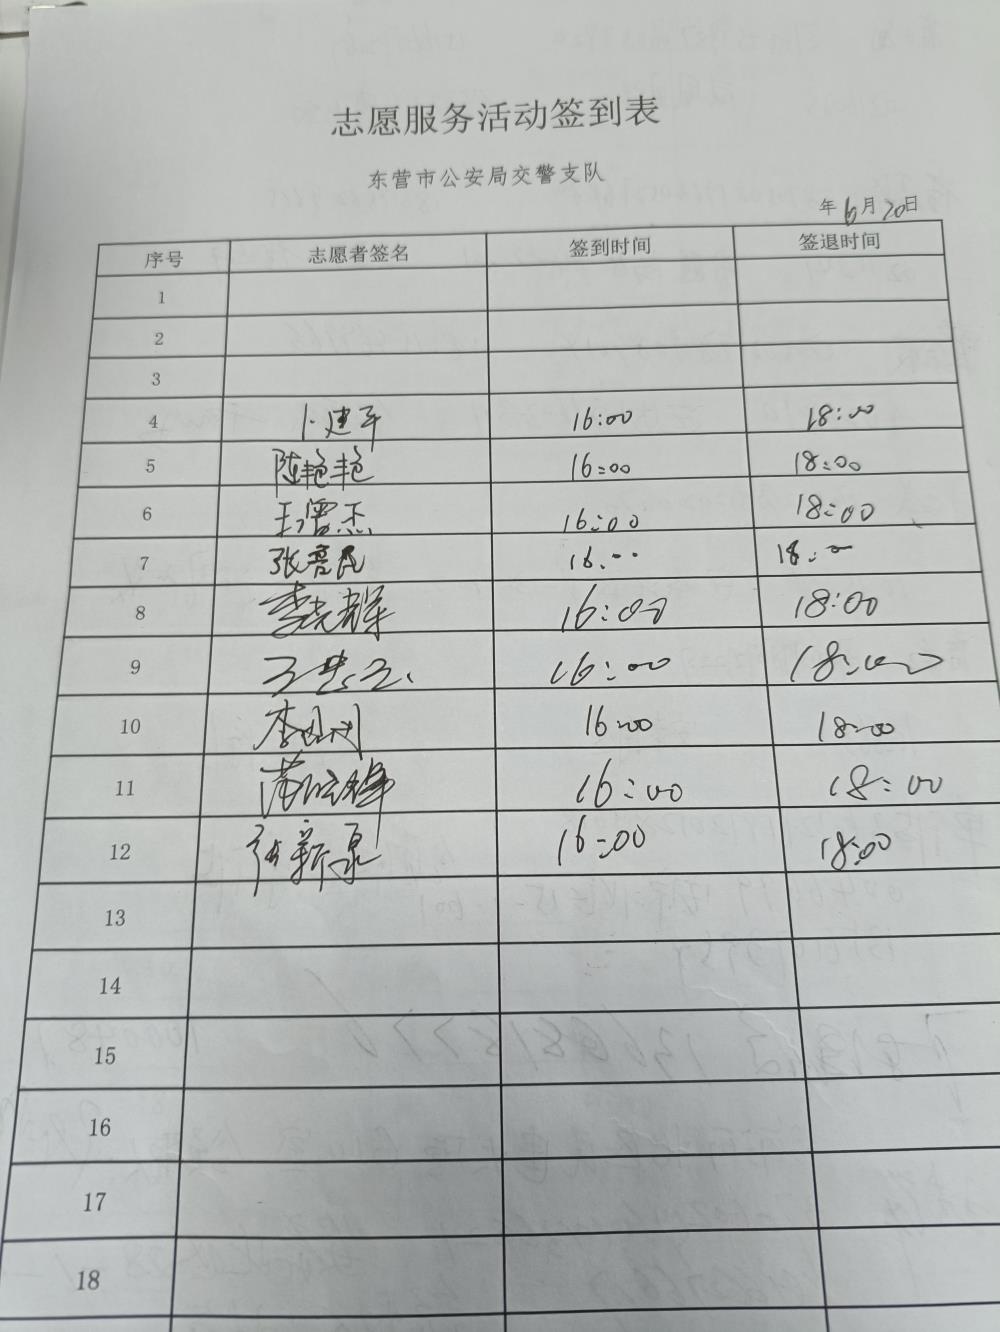 志愿服务活动签到表
东营市公安局交警支队
年6月20日
序号 志愿者签名 签到时间 签退时间
1
2
3
4 卜建平 16:00 18:00
5 陈艳艳 16:00 18:00
6 16:00 18:00
7 张亮民 16:00 18:00
8 李克辉 16:00 18:00
9 16:00 18:00
10 16:00 18:00
11 16:00 18:00
12 张新泉 16:00 18:00
13
14
15
16
17
18